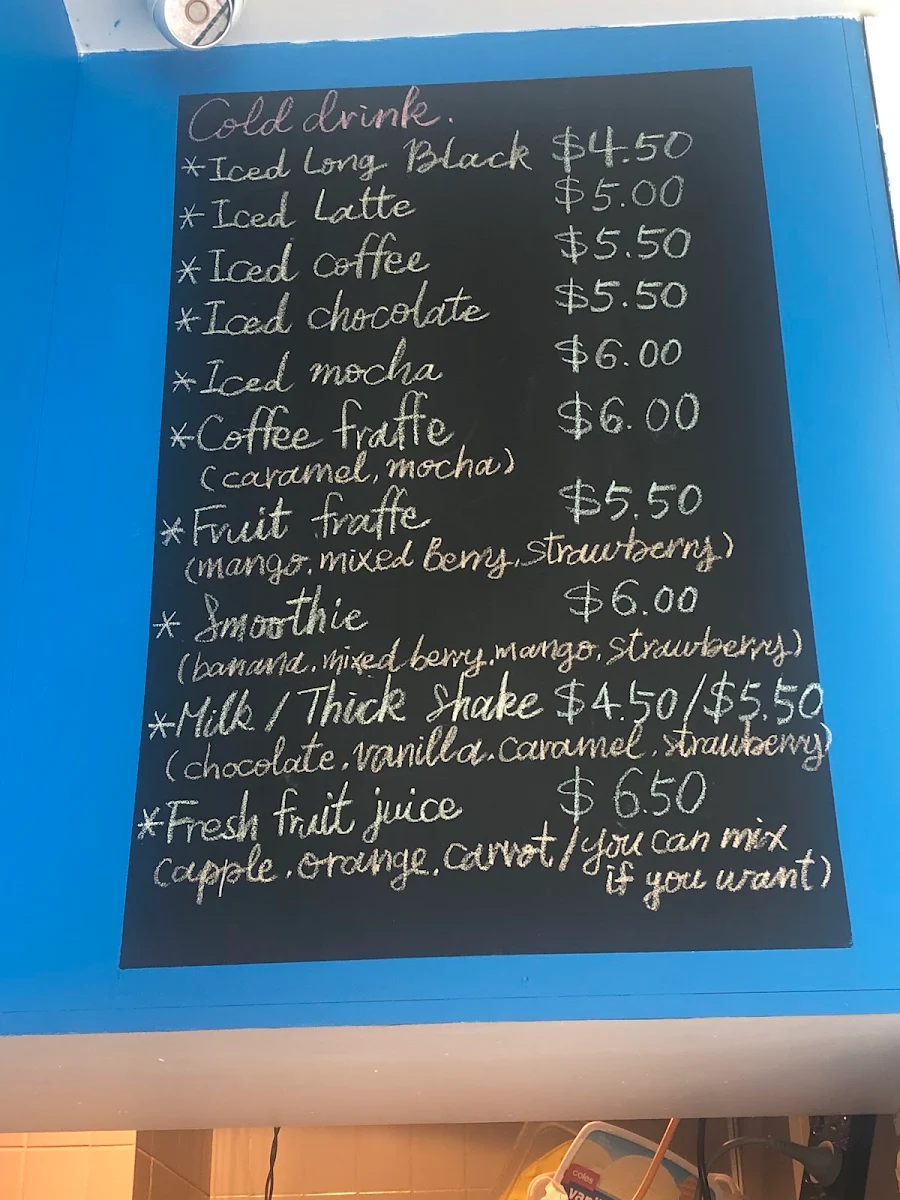 Cold drink.
*Iced Long Black $4.50
*Iced Latte $5.00
*Iced coffee $5.50
*Iced chocolate $5.50
*Iced mocha $6.00
*Coffee fraffe $6.00
(caramel, mocha)
*Fruit fraffe $5.50
(mango, mixed Berry, Strawberry)
* Smoothie $6.00
(banana, mixed berry, mango, strawberry)
*Milk / Thick Shake $4.50/$5.50
(chocolate, vanilla, caramel, strawberry)
*Fresh fruit juice $6.50
(apple, orange, carrot / you can mix
if you want)
coles